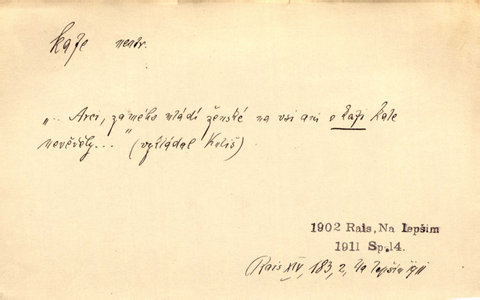 kafe neskl.
„.. Arci, za mého mládí ženské na vsi ani o kafi kafe
nevěděly..." (vykládal Kališ).
1902 Rais, Na lepším
1911 Sp.14.
Rais XIV, 183, 2, Na lepším 1911